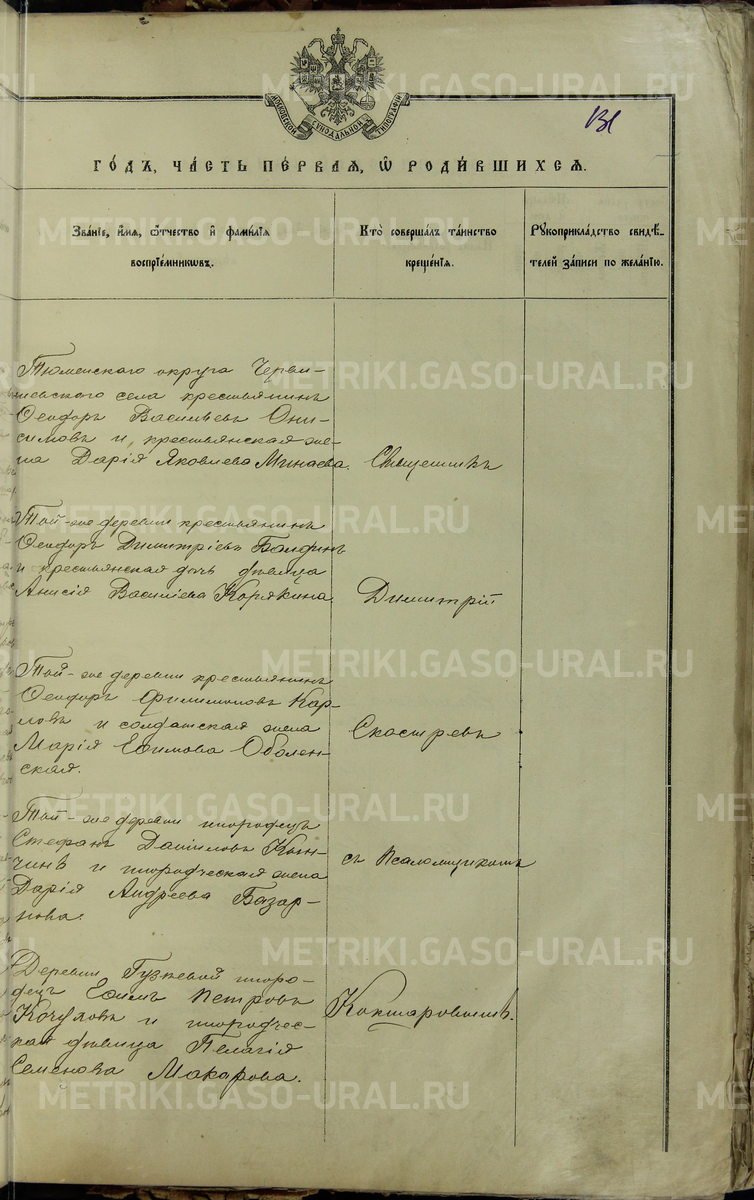 МОСКОВСКОЙ СѴНОДАЛЬНОЙ ТИПОГРАФІИ
131
ГОДЪ, ЧАСТЬ ПЕРВАЯ, Ѿ РОДИВШИХСЯ.
Званіе, имя, отчество и фамилія
воспріемниковъ.
Кто совершалъ таинство
крещенія.
Рукоприкладство свидѣ-
телей записи по желанію.
Тюменскаго округа Черви-
шевского села крестьянинъ
Ѳеодоръ Васильевъ Они-
симовъ и крестьянская же-
на Дарія Яковлева Минаева.
Священникъ
Той-же деревни крестьянинъ
Ѳеодоръ Димитріевъ Болдинъ
и крестьянская дочь дѣвица
Анисія Василіева Корякина.
Димитрій
Той-же деревни крестьянинъ
Ѳеодоръ Филимоновъ Кар-
ловъ и солдатская жена
Марія Ефимова Оболен-
ская.
Скостревъ
Той-же деревни инородецъ
Стефанъ Даниловъ
и инородческая жена
Дарія Андреева Базар-
нова.
съ Псаломщикомъ
Деревни Гузневой иноро-
децъ Ефимъ Петровъ
Кочуловъ и инородчес-
кая дѣвица Пелагія
Семенова Макарова.
Кокшаровымъ.
METRIKI.GASO-URAL.RU